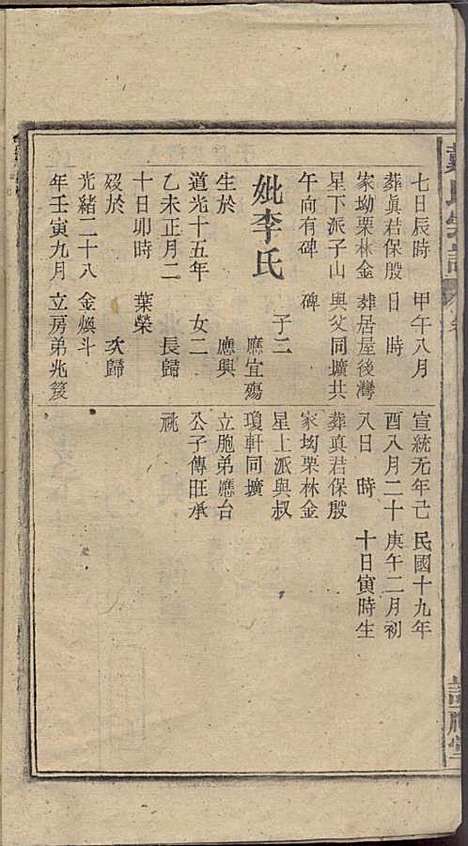 七日辰時　甲午八月
葬眞君保殷　日　時
家坳栗林金　葬居屋後灣
星下派子山　與父同壙共
午向有碑　碑
妣李氏　子二
生於　應宜殤
道光十五年　應興
乙未正月二　女二
十日卯時　長歸
歿於　葉榮
光緒二十八　次歸
年壬寅九月　金煥斗
立房弟兆笈
宣統元年己　民國十九年
酉八月二十　庚午二月初
八日　時　十日寅時生
葬真君保殷
家坳栗林金
星上派與叔
瓊軒同壙
立胞弟應台
公子傳旺承
祧